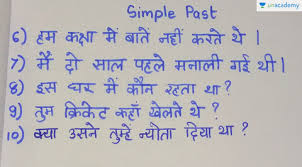 unacademy
Simple Past
6) हम कक्षा में बातें नहीं करते थे |
7) मैं दो साल पहले मनाली गई थी |
8) इस घर में कौन रहता था ?
9) तुम क्रिकेट कहाँ खेलते थे ?
10) क्या उसने तुम्हे न्योता दिया था ?